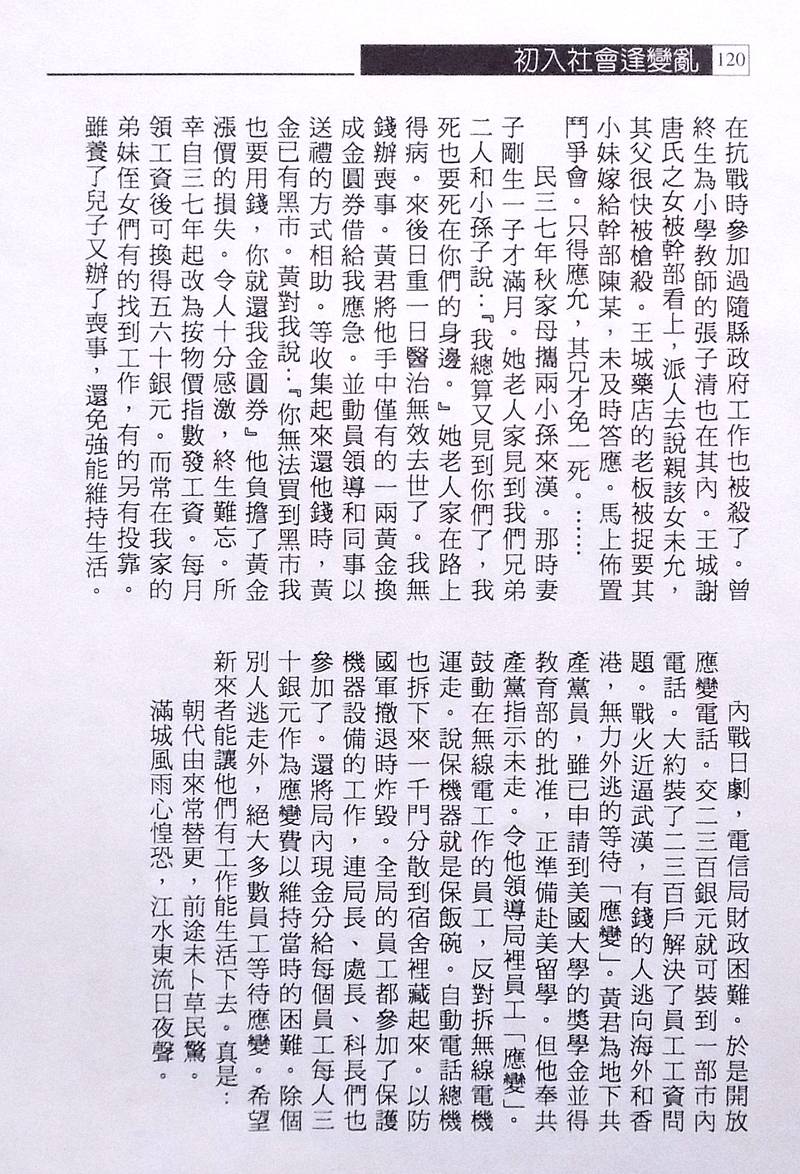 初入社會逢變亂 120
在抗戰時參加過隨縣政府工作也被殺了。曾
終生為小學教師的張子清也在其內。王城謝
唐氏之女被幹部看上，派人去說親該女未允，
其父很快被槍殺。王城藥店的老板被捉要其
小妹嫁給幹部陳某，未及時答應。馬上佈置
鬥爭會。只得應允，其兄才免一死。……
民三七年秋家母攜兩小孫來漢。那時妻
子剛生一子才滿月。她老人家見到我們兄弟
二人和小孫子說：『我總算又見到你們了，我
死也要死在你們的身邊。』她老人家在路上
得病。來後日重一日醫治無效去世了。我無
錢辦喪事。黃君將他手中僅有的一兩黃金換
成金圓券借給我應急。並動員領導和同事以
送禮的方式相助。等收集起來還他錢時，黃
金已有黑市。黃對我說：『你無法買到黑市我
也要用錢，你就還我金圓券』他負擔了黃金
漲價的損失。令人十分感激，終生難忘。所
幸自三七年起改為按物價指數發工資。每月
領工資後可換得五六十銀元。而常在我家的
弟妹侄女們有的找到工作，有的另有投靠。
雖養了兒子又辦了喪事，還免強能維持生活。
內戰日劇，電信局財政困難。於是開放
應變電話。交二三百銀元就可裝到一部市內
電話。大約裝了二三百戶解決了員工工資問
題。戰火近逼武漢，有錢的人逃向海外和香
港，無力外逃的等待「應變」。黃君為地下共
產黨員，雖已申請到美國大學的獎學金並得
教育部的批准，正準備赴美留學。但他奉共
產黨指示未走。令他領導局裡員工「應變」。
鼓動在無線電工作的員工，反對拆無線電機
運走。說保機器就是保飯碗。自動電話總機
也拆下來一千門分散到宿舍裡藏起來。以防
國軍撤退時炸毀。全局的員工都參加了保護
機器設備的工作，連局長、處長、科長們也
參加了。還將局內現金分給每個員工每人三
十銀元作為應變費以維持當時的困難。除個
別人逃走外，絕大多數員工等待應變。希望
新來者能讓他們有工作能生活下去。真是：
朝代由來常替更，前途未卜草民驚。
滿城風雨心惶恐，江水東流日夜聲。